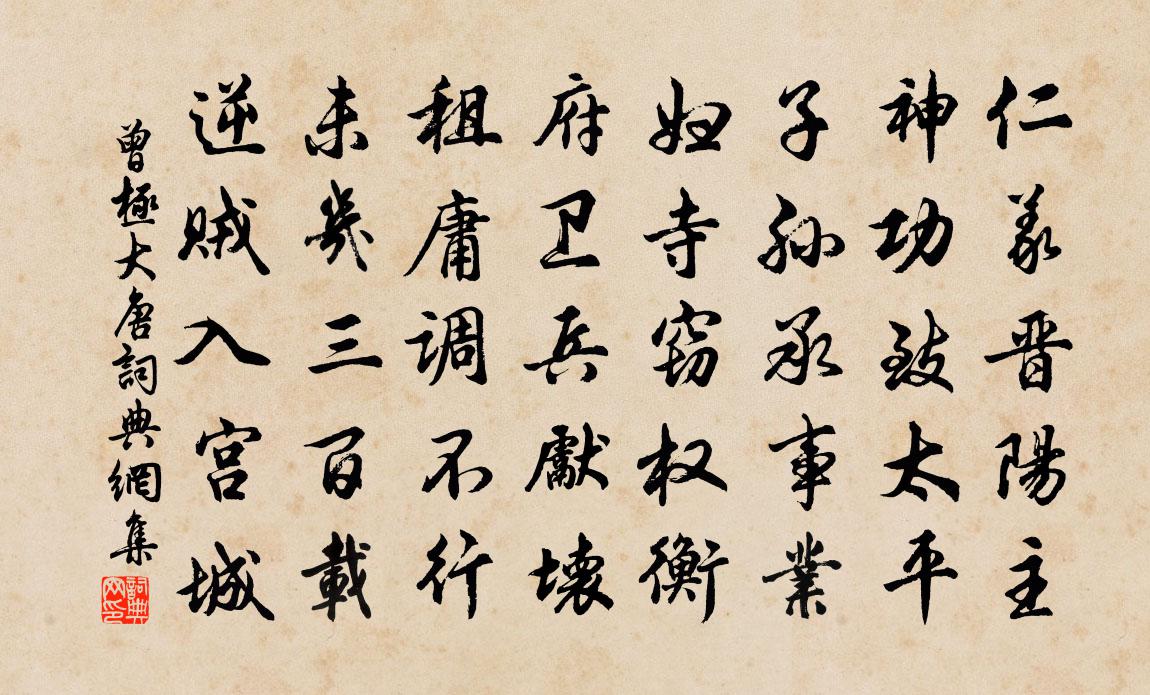 仁義晋陽主
神功致太平
子孫承事業
妇寺窃权衡
府卫兵獻壞
租庸调不行
未幾三百載
逆贼入宫城
曾極大唐詞典網集
詞典网印